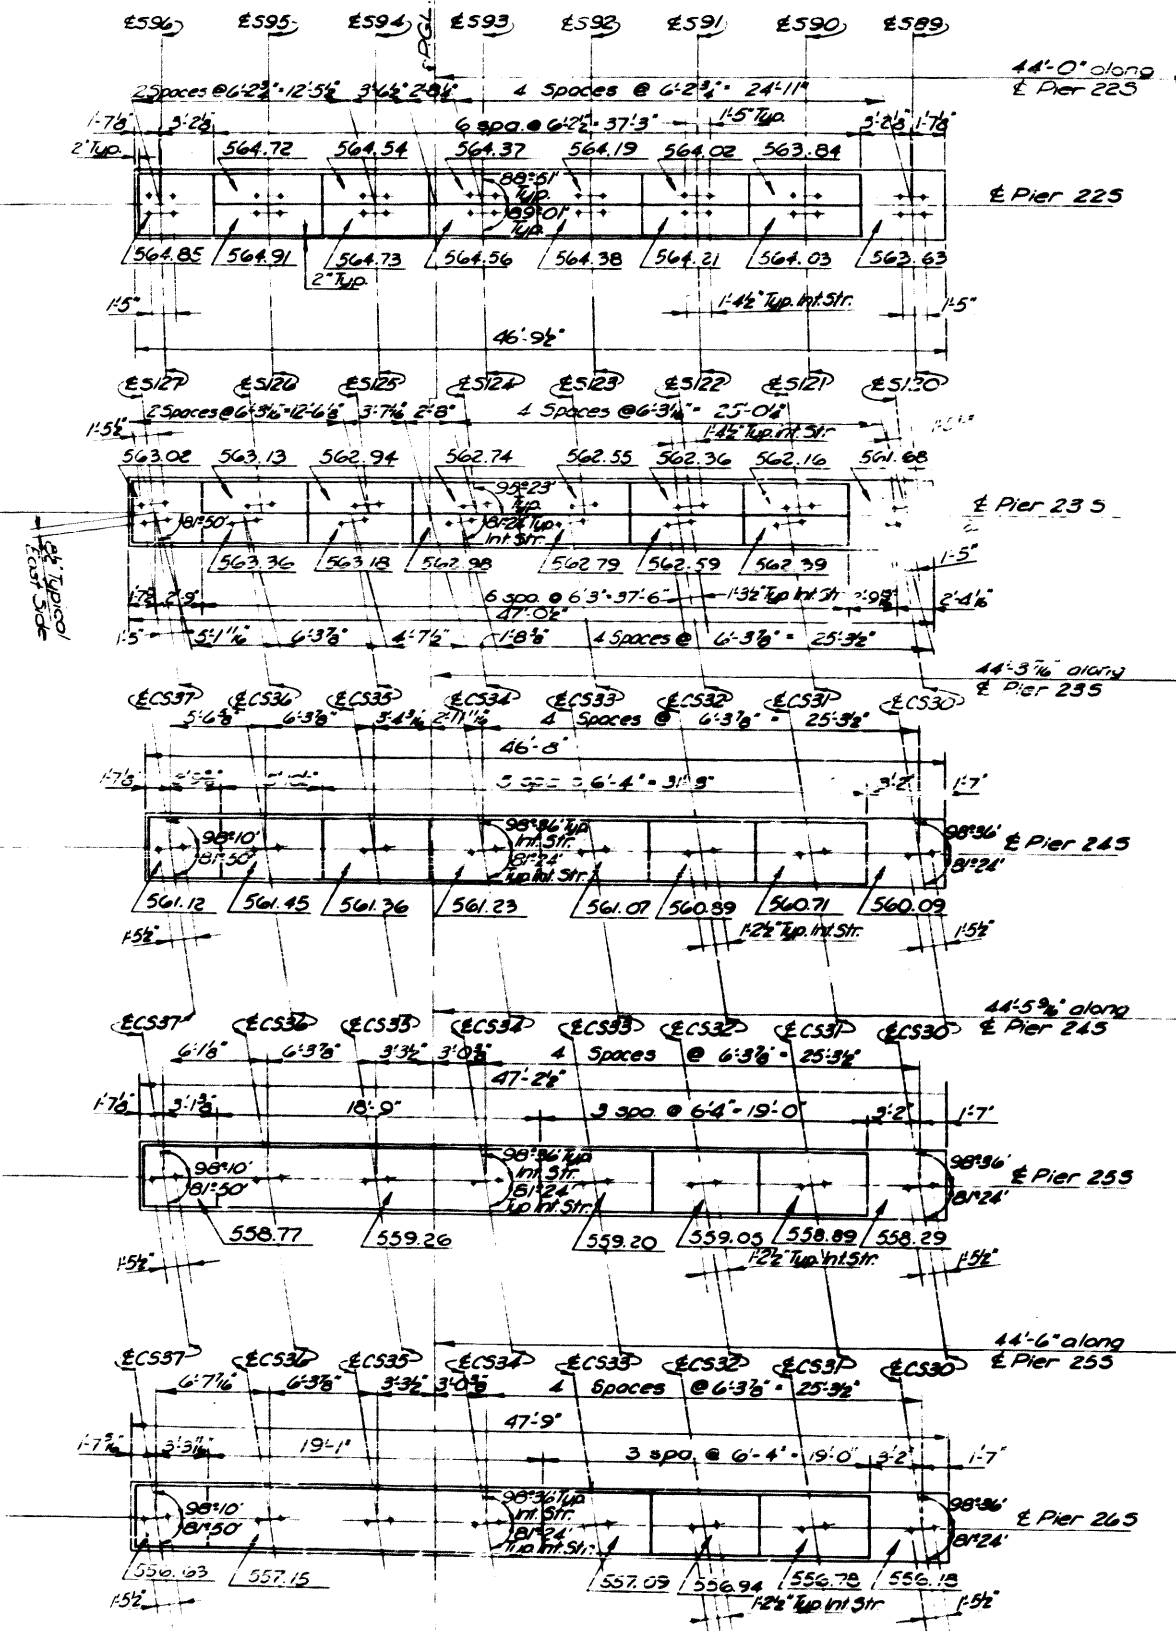 ℄S96 ℄S95 ℄S94 ℄PGL ℄S93 ℄S92 ℄S91 ℄S90 ℄S89
44'-0" along
℄ Pier 22S
2 Spaces @ 6'-2¾" = 12'-5½" 3'-6½" 2'-8¼" 4 Spaces @ 6'-2¾" = 24'-11"
1'-7⅞" 3'-2⅛" 6 spa. @ 6'-2½" = 37'-3" 1'-5" Typ. 3'-2⅛" 1'-7⅞"
2" Typ.
564.72 564.54 564.37 564.19 564.02 563.84
88°-51'
Typ.
89°-01'
Typ.
℄ Pier 22S
564.85 564.91 564.73 564.56 564.38 564.21 564.03 563.63
2" Typ.
1'-5" 1'-4½" Typ. Int. Str. 1'-5"
46'-9½"
℄S127 ℄S126 ℄S125 ℄S124 ℄S123 ℄S122 ℄S121 ℄S120
2 Spaces @ 6'-3 1/16" = 12'-6⅛" 3'-7 1/16" 2'-8" 4 Spaces @ 6'-3 1/16" = 25'-0¼"
1'-5½" 1'-4½" Typ. Int. Str.
563.02 563.13 562.94 562.74 562.55 562.36 562.16 561.68
95°-23'
Typ.
81°-50' 81°-24' Typ.
Int. Str.
℄ Pier 23 S
Typical
East Side
563.36 563.18 562.98 562.79 562.59 562.39
1'-5"
1'-7⅞" 2'-9" 6 spa. @ 6'-3" = 37'-6" 1'-3½" Typ. Int. Str. 2'-4 1/16"
47'-0½"
1'-5" 5'-1 11/16" 6'-3⅞" 4'-7½" 1'-8⅜" 4 Spaces @ 6'-3⅞" = 25'-3½"
44'-3 7/16" along
℄ Pier 23S
℄CS37 ℄CS36 ℄CS35 ℄CS34 ℄CS33 ℄CS32 ℄CS31 ℄CS30
5'-6⅝" 6'-3⅞" 3'-4 3/16" 2'-11 11/16" 4 Spaces @ 6'-3⅞" = 25'-3½"
46'-8"
1'-7⅞" 5 spa @ 6'-4" = 31'-8" 3'-2" 1'-7"
98°10'
81°-50'
98°-36' Typ
Int. Str.
81°-24'
Typ. Int. Str.
98°-36'
81°-24'
℄ Pier 24S
561.12 561.45 561.36 561.23 561.07 560.89 560.71 560.09
1'-5½" 1'-2½" Typ. Int. Str. 1'-5½"
44'-5 9/16" along
℄ Pier 24S
℄CS37 ℄CS36 ℄CS35 ℄CS34 ℄CS33 ℄CS32 ℄CS31 ℄CS30
6'-1⅛" 6'-3⅞" 3'-3½" 3'-0⅜" 4 Spaces @ 6'-3⅞" = 25'-3½"
47'-2⅛"
1'-7⅞" 3'-1⅜" 18'-9" 3 spa. @ 6'-4" = 19'-0" 3'-2" 1'-7"
98°10'
81°-50'
98°-36' Typ
Int. Str.
81°-24'
Typ. Int. Str.
98°-36'
81°-24'
℄ Pier 25S
558.77 559.26 559.20 559.05 558.89 558.29
1'-5½" 1'-2½" Typ. Int. Str. 1'-5½"
44'-6" along
℄ Pier 25S
℄CS37 ℄CS36 ℄CS35 ℄CS34 ℄CS33 ℄CS32 ℄CS31 ℄CS30
6'-7 7/16" 6'-3⅞" 3'-3½" 3'-0⅜" 4 Spaces @ 6'-3⅞" = 25'-3½"
47'-9"
1'-7 5/16" 3'-3 11/16" 19'-1" 3 spa. @ 6'-4" = 19'-0" 3'-2" 1'-7"
98°10'
81°-50'
98°-36' Typ.
Int. Str.
81°-24'
Typ. Int. Str.
98°-36'
81°-24'
℄ Pier 26S
556.63 557.15 557.09 556.94 556.78 556.18
1'-5½" 1'-2½" Typ Int Str. 1'-5½"